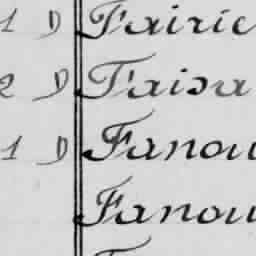 1 D Fairie
2 D Faisa
1 D Fanou
Fanou